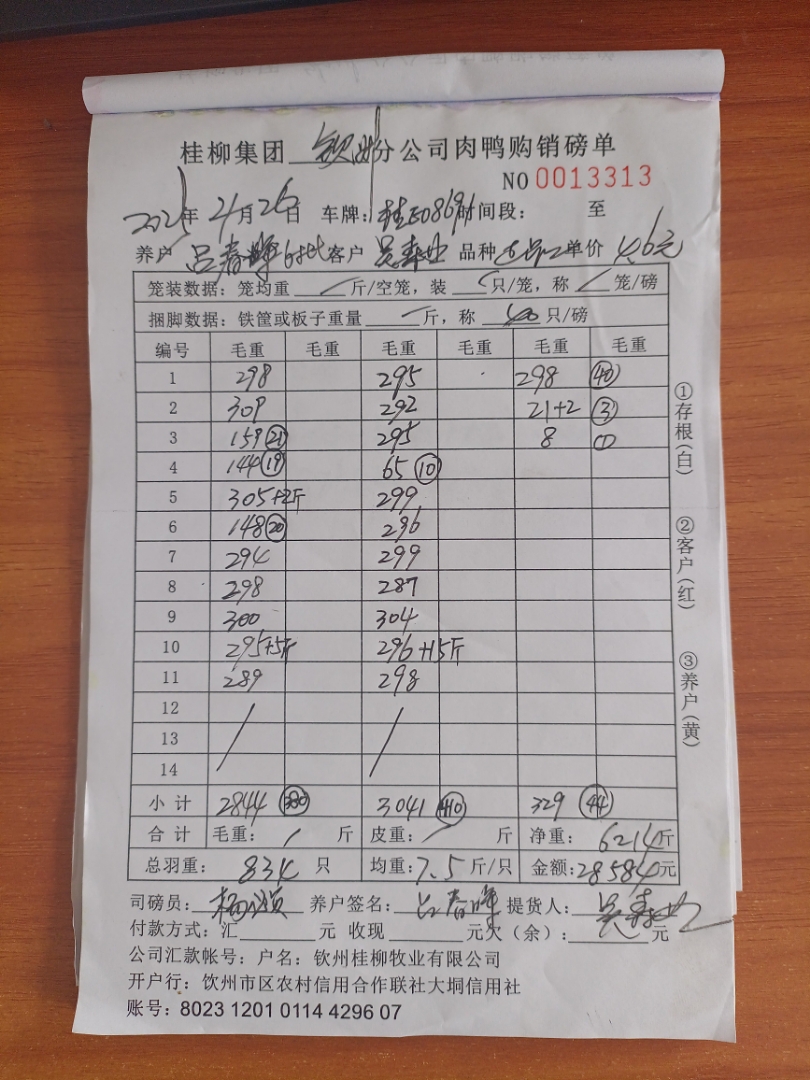 桂柳集团 钦州 分公司肉鸭购销磅单
NO 0013313
2025年 4月 26日 车牌: 时间段: 至
养户 吕春晖 客户 吴寿世 品种 单价 4.6元
笼装数据: 笼均重 / 斤/空笼, 装 / 只/笼, 称 / 笼/磅
捆脚数据: 铁筐或板子重量 / 斤, 称 40 只/磅
编号 毛重 毛重 毛重 毛重 毛重 毛重
1 298 295 298 40
2 309 292 21+2 3
3 159 21 295 8 1
4 144 19 65 10
5 305+2斤 299
6 148 20 296
7 294 299
8 298 287
9 300 304
10 295+5斤 296+15斤
11 289 298
12
13
14
小计 2844 380 3041 410 329 44
合计 毛重: / 斤 皮重: / 斤 净重: 6214斤
总羽重: 834 只 均重: 7.5 斤/只 金额: 28584元
司磅员: 养户签名: 吕春晖 提货人: 吴寿世
付款方式: 汇 元 收现 元欠(余): 元
公司汇款帐号: 户名: 钦州桂柳牧业有限公司
开户行: 饮州市区农村信用合作联社大垌信用社
账号: 8023 1201 0114 4296 07
①存根(白)
②客户(红)
③养户(黄)